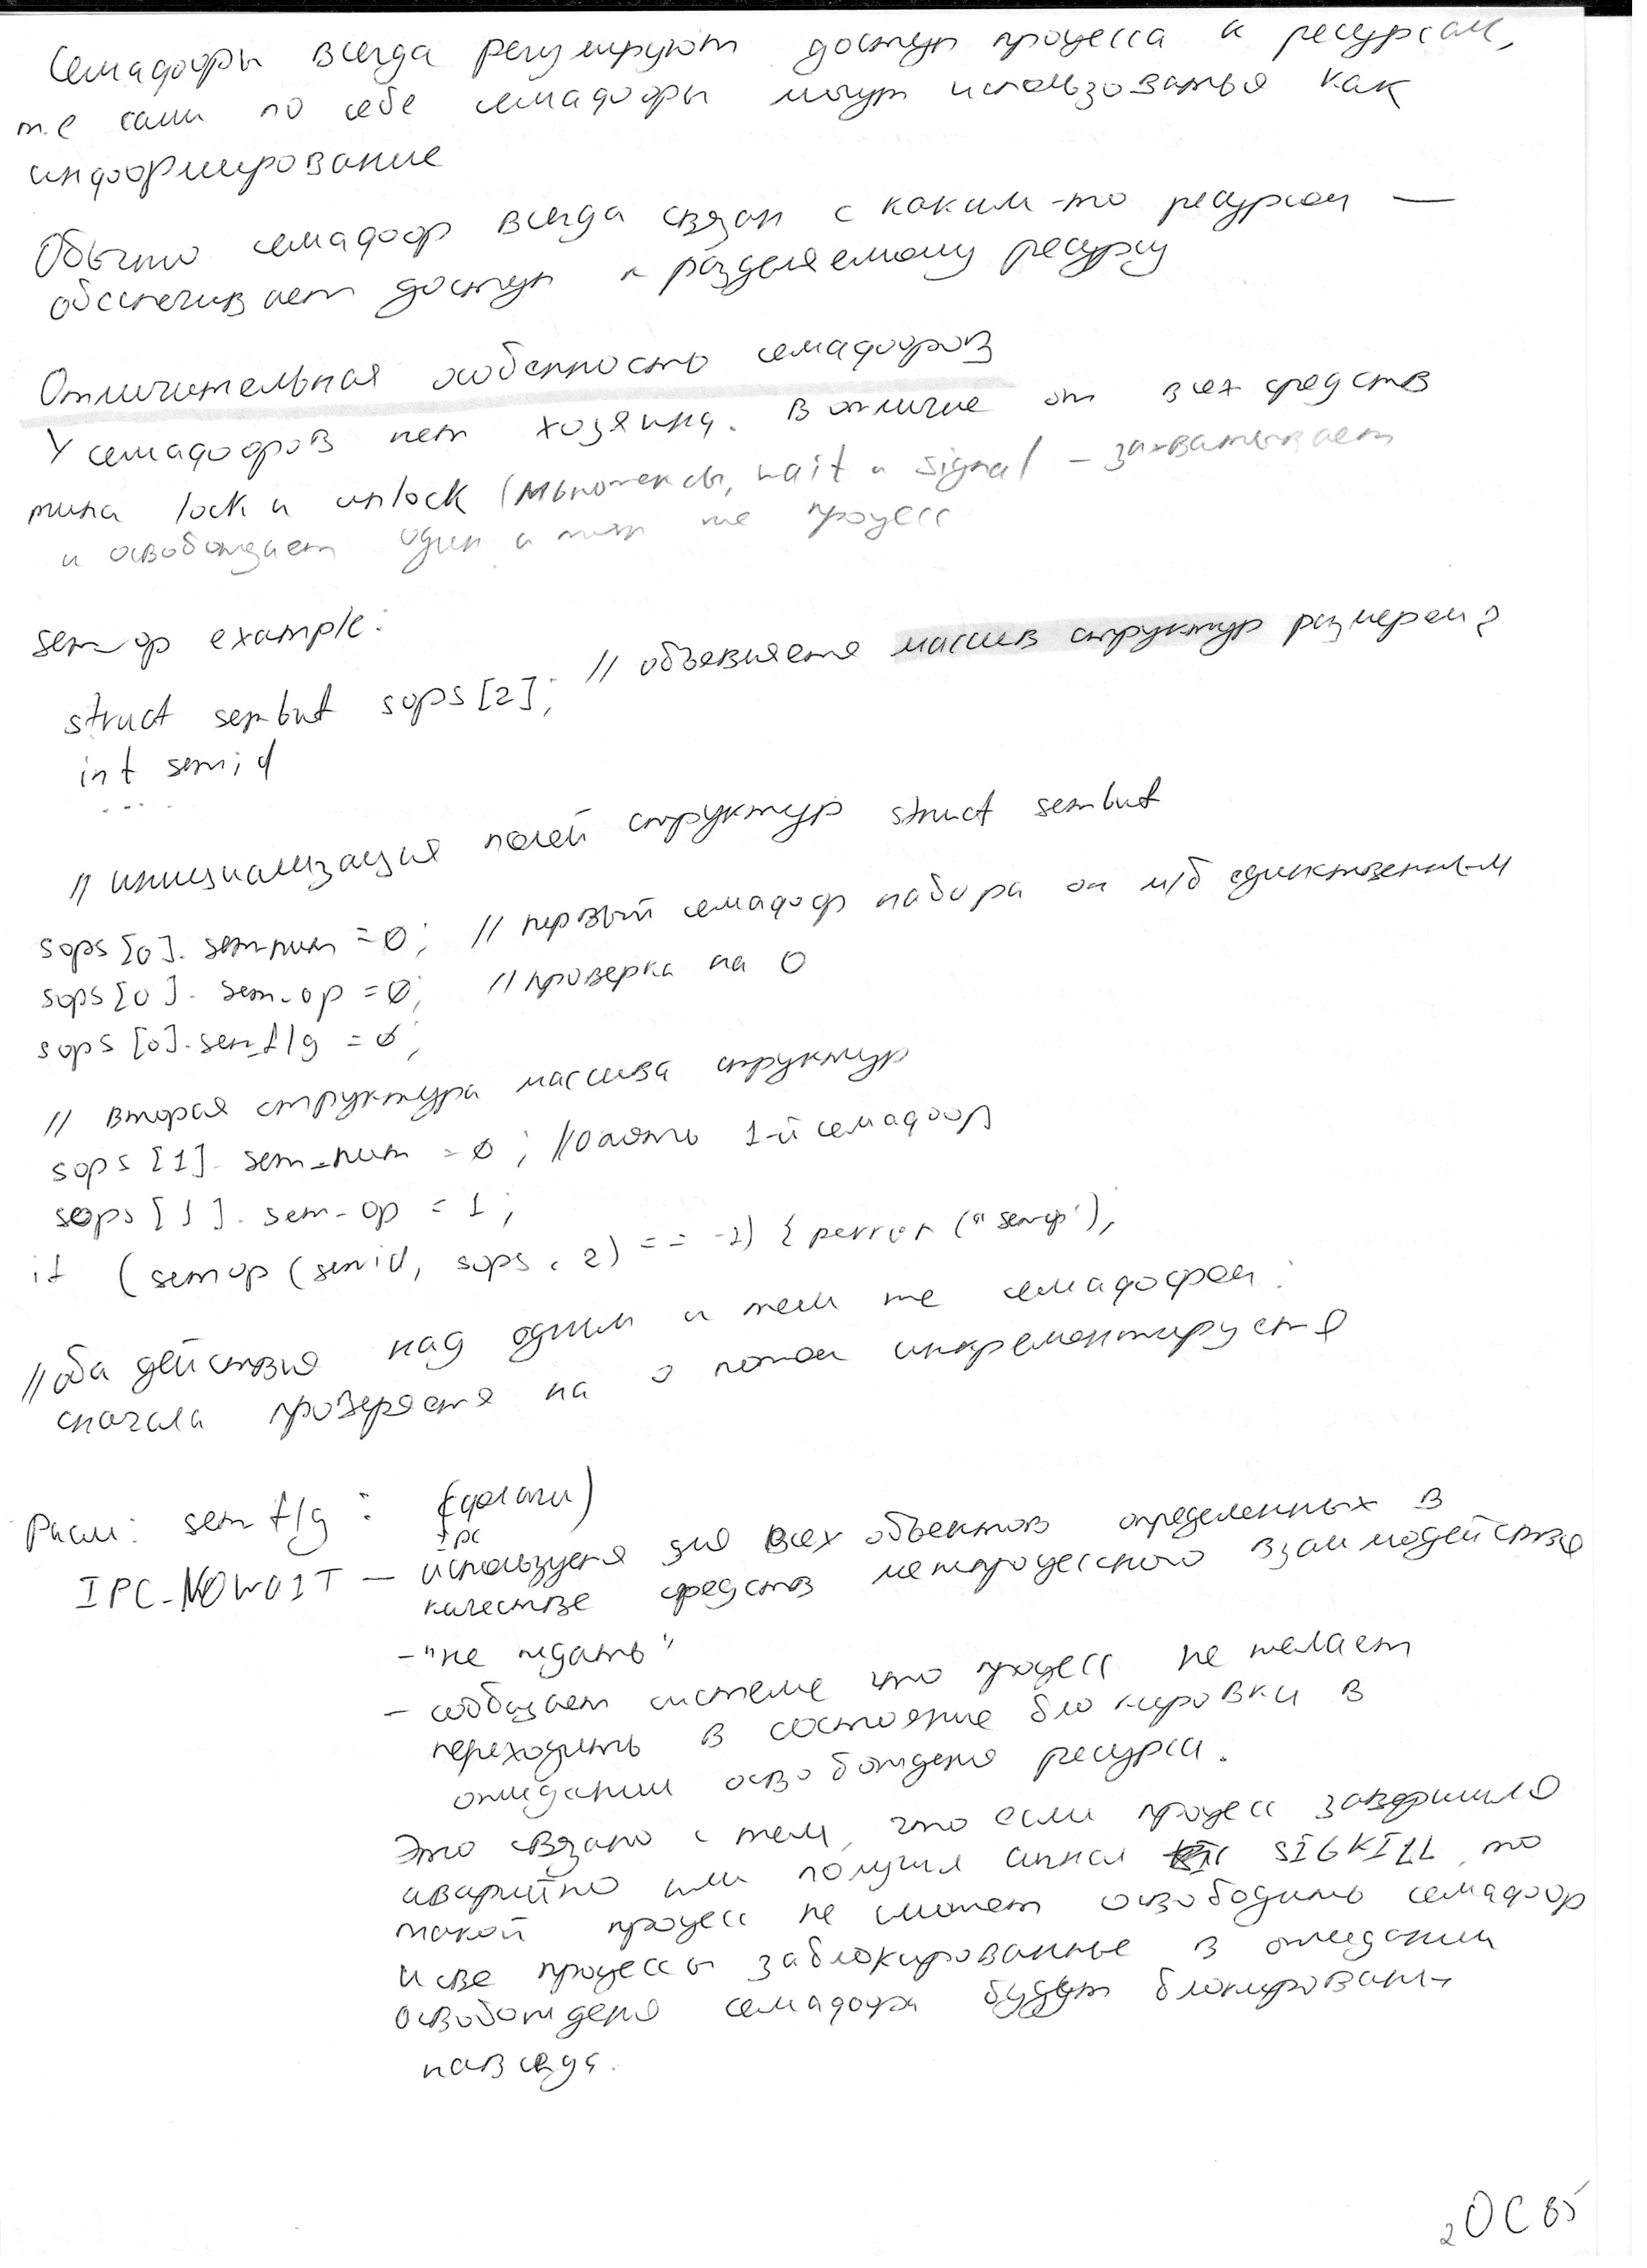 Семафоры всегда регулируют доступ процесса к ресурсам,
т.е сами по себе семафоры могут использоваться как
информирование
Обычно семафор всегда связан с каким-то ресурсом —
обеспечивает доступ к разделяемому ресурсу
Отличительная особенность семафоров
У семафоров нет хозяина. В отличие от всех средств
типа lock и unlock (мьютексы, wait и signal – захватывает
и освобождает один и тот же процесс
sem_op example:
struct sembuf sops[2]; // объявляется массив структур размером 2
int semid
....
// инициализация полей структур struct sembuf
sops[0].sem_num = 0; // первый семафор набора он м/б единственным
sops[0].sem_op = 0; // проверка на 0
sops[0].sem_flg = 0;
// вторая структура массива структур
sops[1].sem_num = 0; // опять 1-й семафор
sops[1].sem_op = 1;
if (semop(semid, sops, 2) == -1) { perror("semop");
// оба действия над одним и тем же семафором:
сначала проверяется на 0 потом инкрементируется
Расм: sem flg : (флаги)
IPC
IPC_NOWAIT — используется для всех объектов определенных в
качестве средств межпроцессного взаимодействия
- "не ждать"
- сообщает системе что процесс не желает
переходить в состояние блокировки в
ожидании освобождения ресурса.
Это связано с тем, что если процесс завершился
аварийно или получил сигнал SIGKILL, то
такой процесс не сможет освободить семафор
и все процессы заблокированные в ожидании
освобождения семафора будут блокированы
навсегда.
2 ОС 85